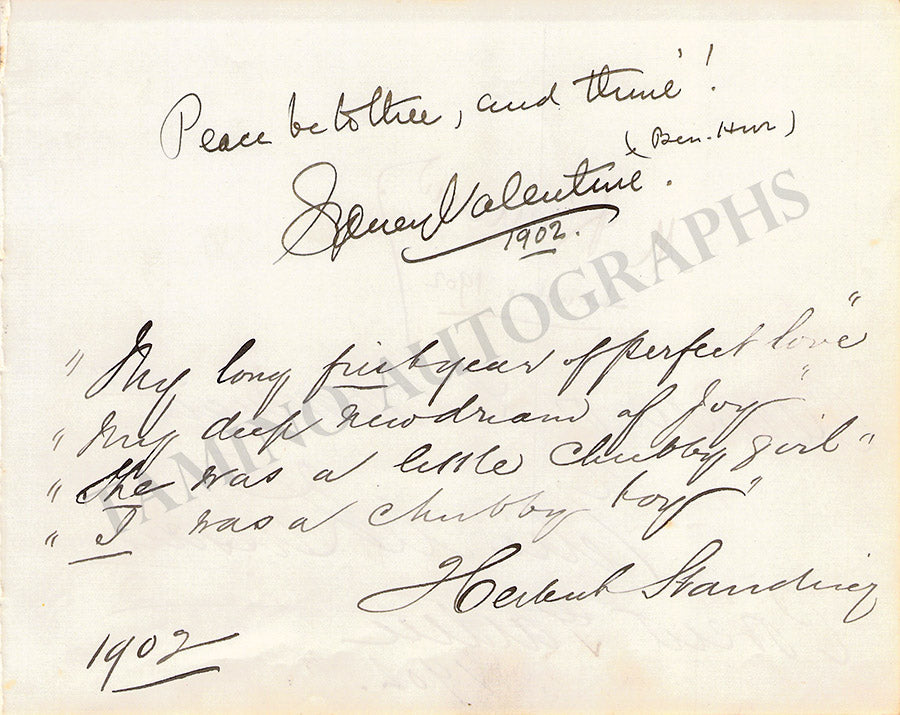 Peace be to thee, and thine!
(Ben-Hur)
Sydney Valentine.
1902.
"My long first year of perfect love"
"My deep new dream of Joy"
"She was a little chubby girl"
"I was a chubby boy"
Herbert Standing
1902
TAMINO AUTOGRAPHS